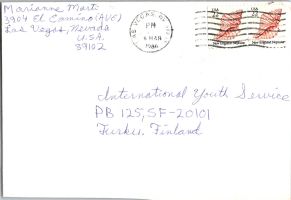 Marianne Marti
3904 El Camino (AVE)
Las Vegas, Nevada
U.S.A.
89102
LAS VEGAS, NV
PM
6 MAR
1986
USA 22
USA 22
International Youth Service
PB 125, SF-20101
Turku, Finland